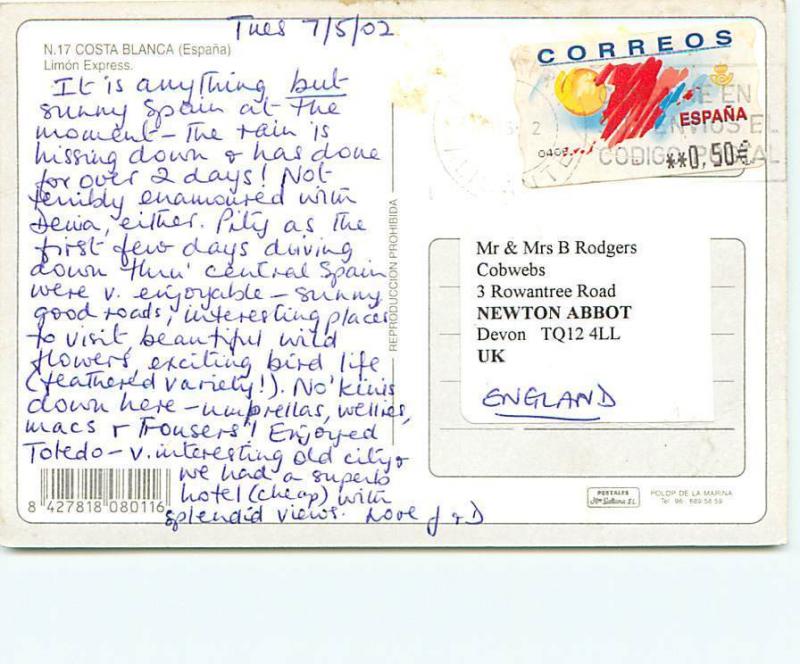 Tues 7/5/02
N.17 COSTA BLANCA (España)
Limón Express.
It is anything but
sunny Spain at the
moment – The rain is
hissing down & has done
for over 2 days! Not
terribly enamoured with
Denia, either. Pity as the
first few days driving
down thru' central Spain
were v. enjoyable – sunny
good roads, interesting places
to visit, beautiful wild
flowers, exciting bird life
(feathered variety!). No
down here – umbrellas, wellies,
macs & Trousers! Enjoyed
Toledo – v. interesting old city &
we had a superb
hotel (cheap) with
splendid views. Love J & D
8 427818 080116
REPRODUCCION PROHIBIDA
CORREOS
ESPAÑA
**0,50€
E EN
ENVIOS EL
CODIGO POSTAL
Mr & Mrs B Rodgers
Cobwebs
3 Rowantree Road
NEWTON ABBOT
Devon TQ12 4LL
UK
ENGLAND
POSTALES
POLOP DE LA MARINA
Tel. 96 - 689 58 59